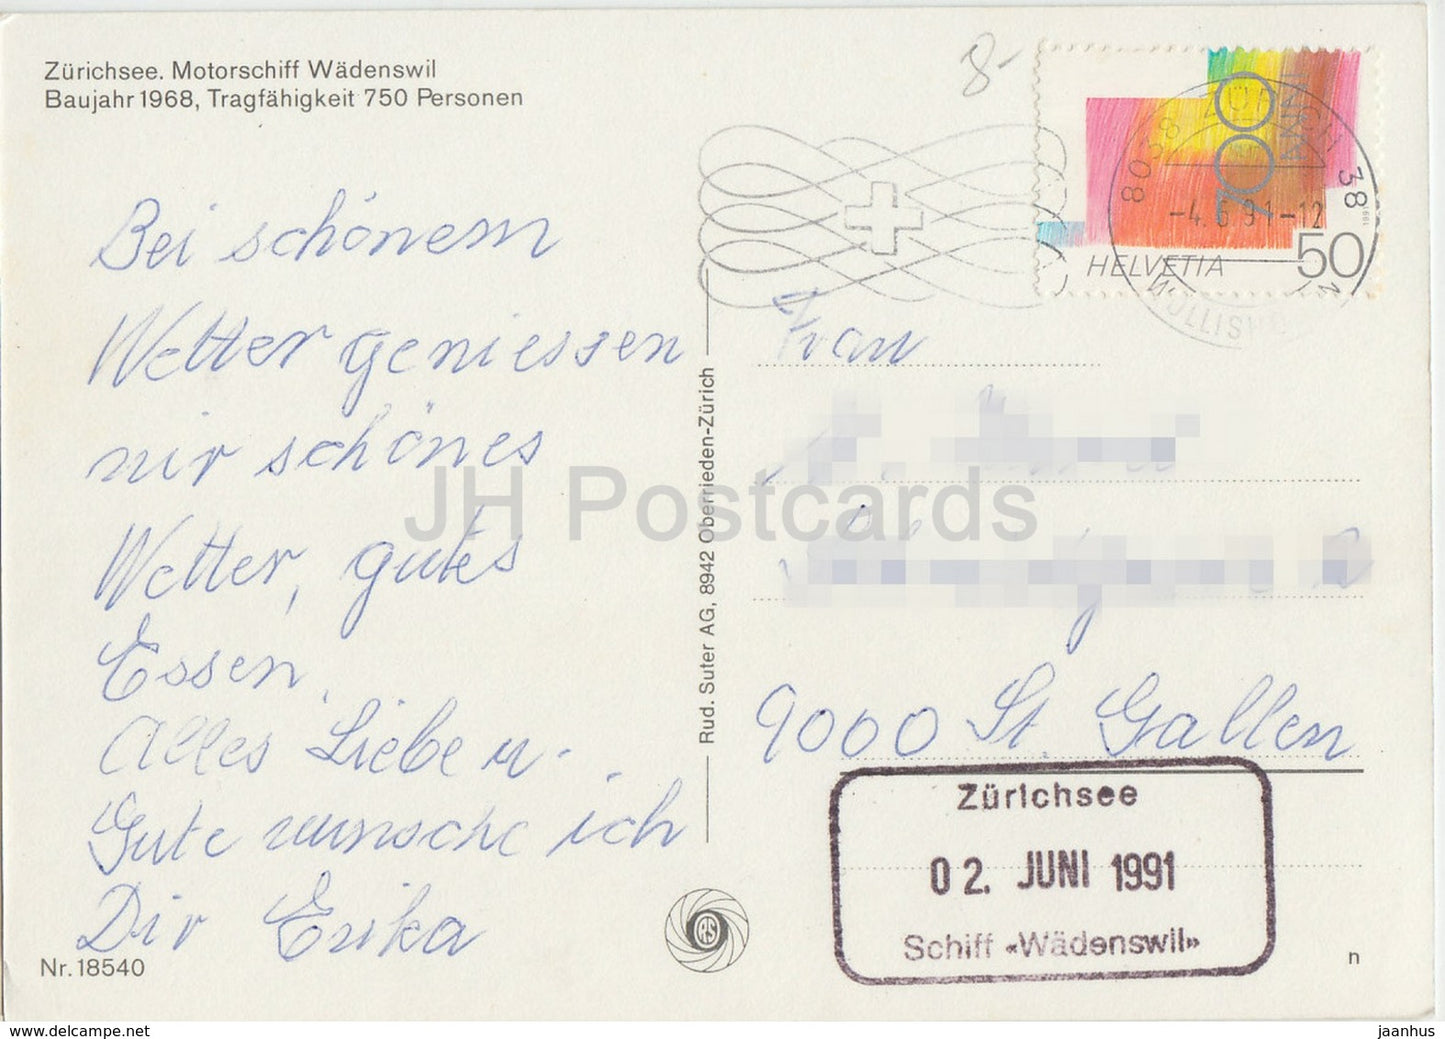 Zürichsee. Motorschiff Wädenswil
Baujahr 1968, Tragfähigkeit 750 Personen
8-
Bei schönem
Wetter geniessen
wir schönes
Wetter, gutes
Essen.
Alles Liebe u.
Gute wünsche ich
Dir Erika
Nr. 18540
Rud. Suter AG, 8942 Oberrieden-Zürich
RS
700
HELVETIA
50
1991
8038 ZÜRICH 38
-4.6.91-12
WOLLISHOFEN
Frau
9000 St. Gallen
Zürichsee
02. JUNI 1991
Schiff «Wädenswil»
n
JH Postcards
jaanhus @ delcampe.net